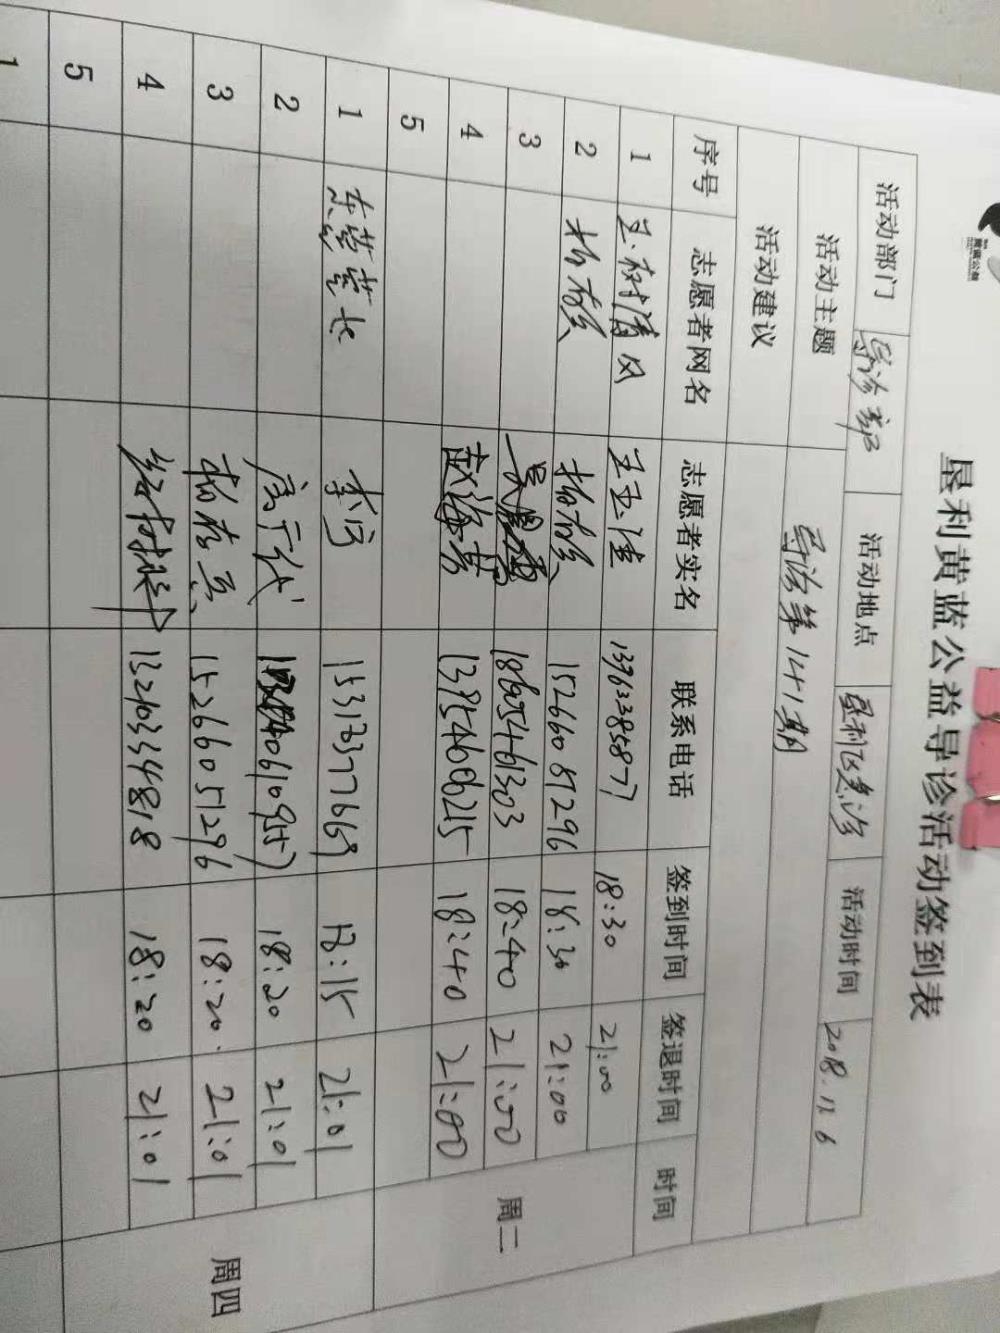 垦利黄蓝公益导诊活动签到表
活动部门 导诊部 活动地点 垦利区急诊 活动时间 2018.11.6
活动主题 导诊第1411期
活动建议
序号 志愿者网名 志愿者实名 联系电话 签到时间 签退时间 时间
1 玉树清风 王玉佳 13963885877 18:30 21:00 周二
2 杨核 杨核 15266051296 18:30 21:00
3 18605461303 18:40 21:00
4 赵海燕 13954606215 18:40 21:00
5
1 东营营长 李河 15313377669 18:15 21:01 周四
2 21:01 18:20
3 15266051296 18:20 21:01
4 13210334818 18:20 21:01
5
1